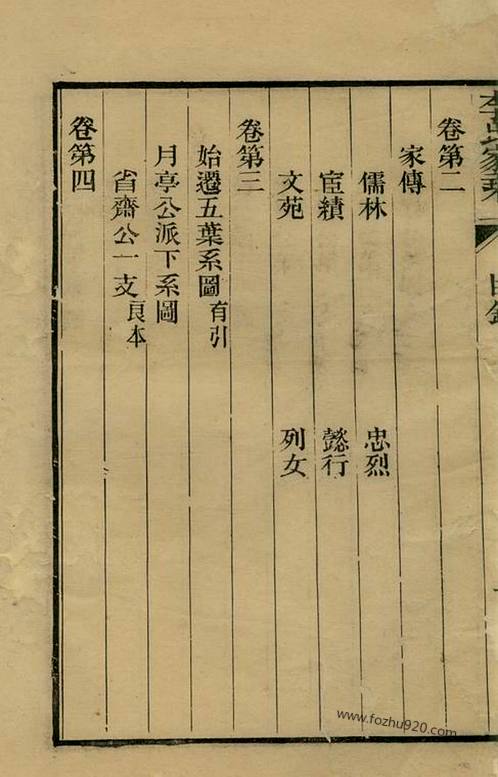 李氏家乘
目錄
卷第二
家傳
儒林 忠烈
宦績 懿行
文苑 列女
卷第三
始遷五葉系圖有引
月亭公派下系圖
省齋公一支良本
卷第四
www.fozhu920.com